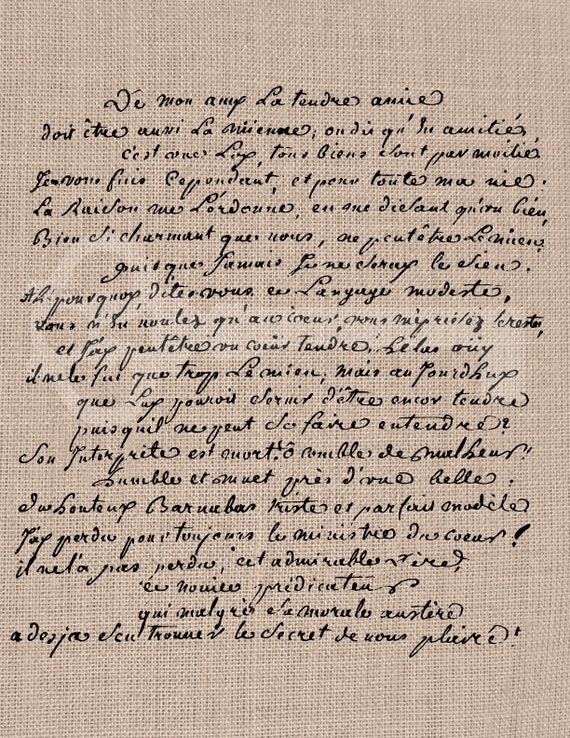 De mon amy La tendre amie
doit être aussi La mienne, on dit qu'En amitié,
c'est une Loy, tous biens sont par moitié
Je vous fuis Cependant, et pour toute ma vie.
La Raison me L'ordonne, en me disant qu'un bien,
Bien si charmant que vous, ne peut être Le mien,
puisque Jamais Je ne seray le sien.
Ah! pourquoy, dites-vous, ce Langage modeste,
vous n'En voulez qu'au coeur, vous méprisez le reste,
et J'ay peut être un coeur tendre. Helas ouy
il ne le fut que trop Le mien; mais aujourdhuy
que Luy pouroit servir d'être encor tendre
puisqu'il ne peut se faire entendre?
Son Interprète est mort. Ô comble de malheur!
humble et muet près d'une belle.
du honteux Barnabas triste et parfait modèle
J'ay perdu pour toujours le ministre du coeur!
il ne l'a pas perdu, cet admirable
ce prédicateur
qui malgré sa morale austère
a desja sçu trouver le secret de vous plaire!